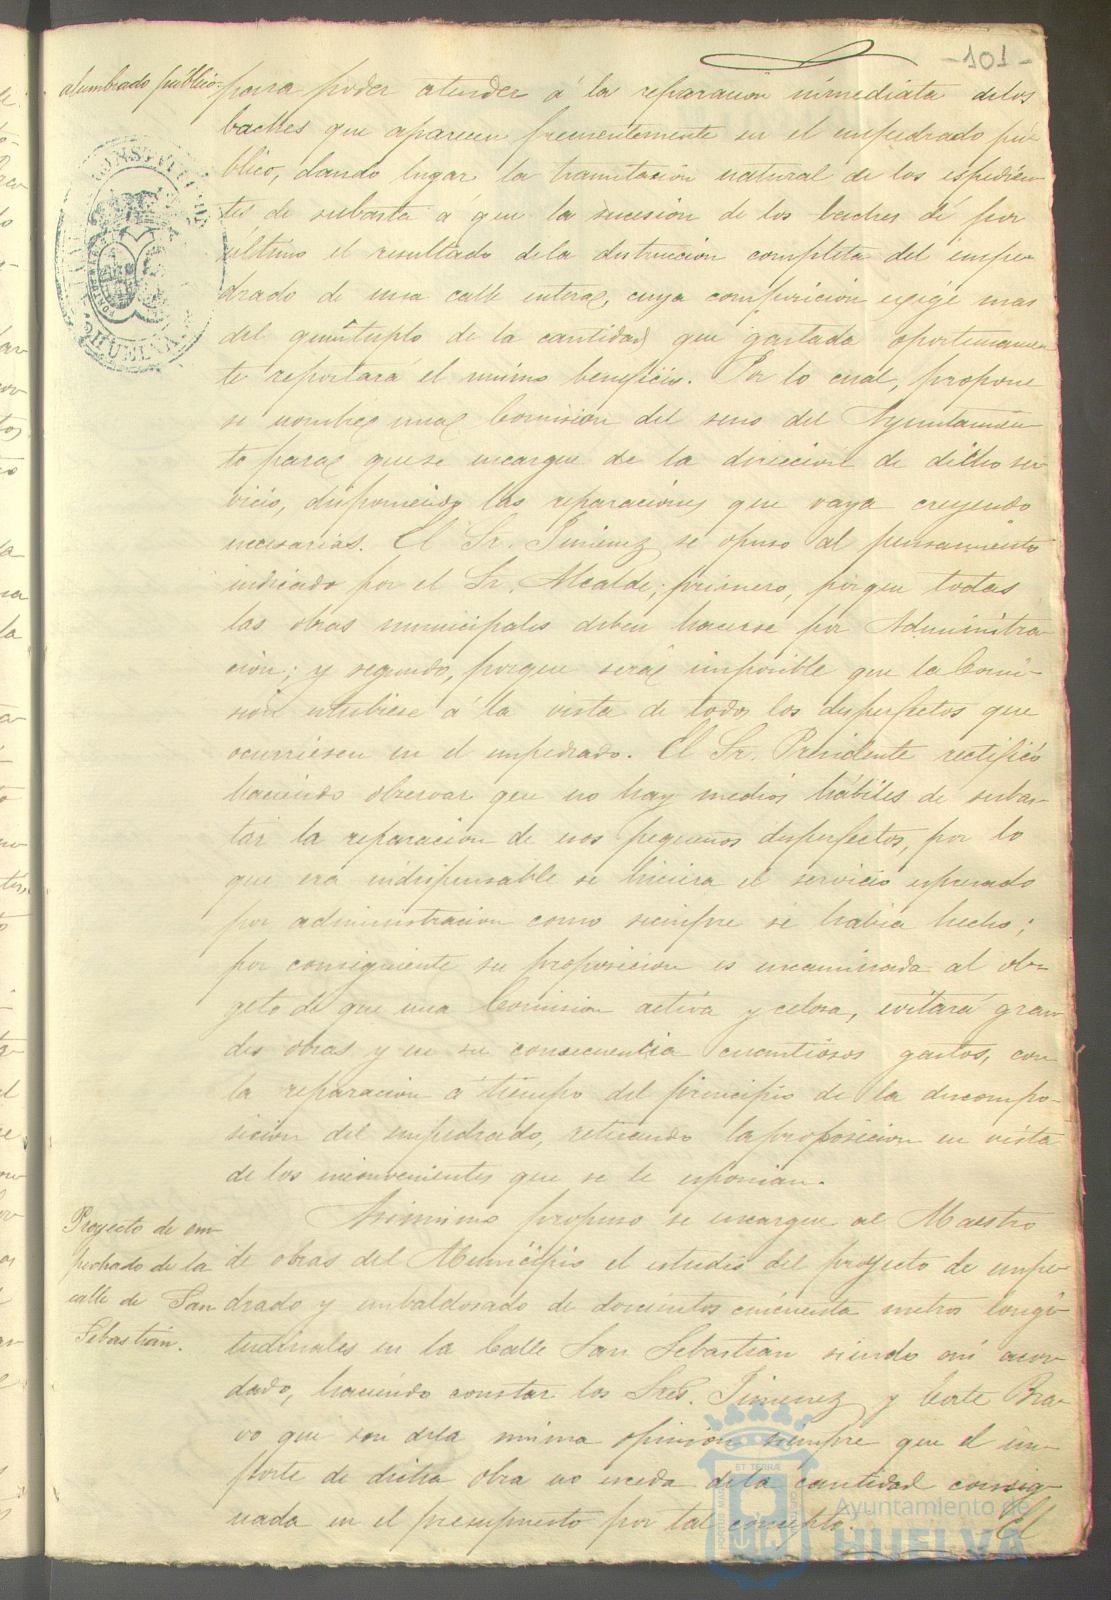 -101-
alumbrado público.
para poder atender á la reparacion inmediata delos
baches que aparecen frecuentemente en el empedrado pú-
blico, dando lugar la tramitacion natural de los espedien-
tes de subasta a que la sucesion de los baches dé por
ultimo el resultado dela destruccion completa del empe-
drado de una calle entera, cuya composicion exige mas
del quintuplo de la cantidad que gastada oportunamen-
te reportará el mismo beneficio. Por lo cual, propone
se nombre una Comision del seno del Ayuntamien-
to para que se encargue de la direccion de dicho ser-
vicio, disponiendo las reparaciones que vaya creyendo
necesarias. El Sr. Jimenez se opuso al pensamiento
indicado por el Sr. Alcalde; primero, porque todas
las obras municipales deben hacerse por Administra-
cion; y segundo, porque será imposible que la Comi-
sion estubiese á la vista de todos los desperfetos que
ocurriesen en el empedrado. El Sr. Presidente rectificó
haciendo observar que no hay medios hábiles de subas-
tar la reparacion de esos pequeños desperfectos, por lo
que era indispensable se hiciera el servicio espresado
por administracion como siempre se habia hecho;
por consiguiente su proposicion es encaminada al ob-
geto de que una Comision activa y celosa, evitará gran-
des obras y en su consecuencia cuantiosos gastos, con
la reparacion á tiempo del principio de la descompo-
sicion del empedrado, retirando la proposicion en vista
de los inconvenientes que se le esponian.
Proyecto de em-
pedrado de la
calle de San
Sebastián.
Asimismo propuso se encargue al Maestro
de obras del Municipio el estudio del proyecto de empe-
drado y embaldosado de doscientos cincuenta metros longi-
tudinales en la Calle San Sebastian siendo asi acor-
dado, haciendo constar los Sres. Jimenez y Corte Bra-
vo que son dela misma opinion siempre que el im-
porte de dicha obra no exceda dela cantidad consig-
nada en el presupuesto por tal concepto.
El
HUELVA
Ayuntamiento de
HUELVA